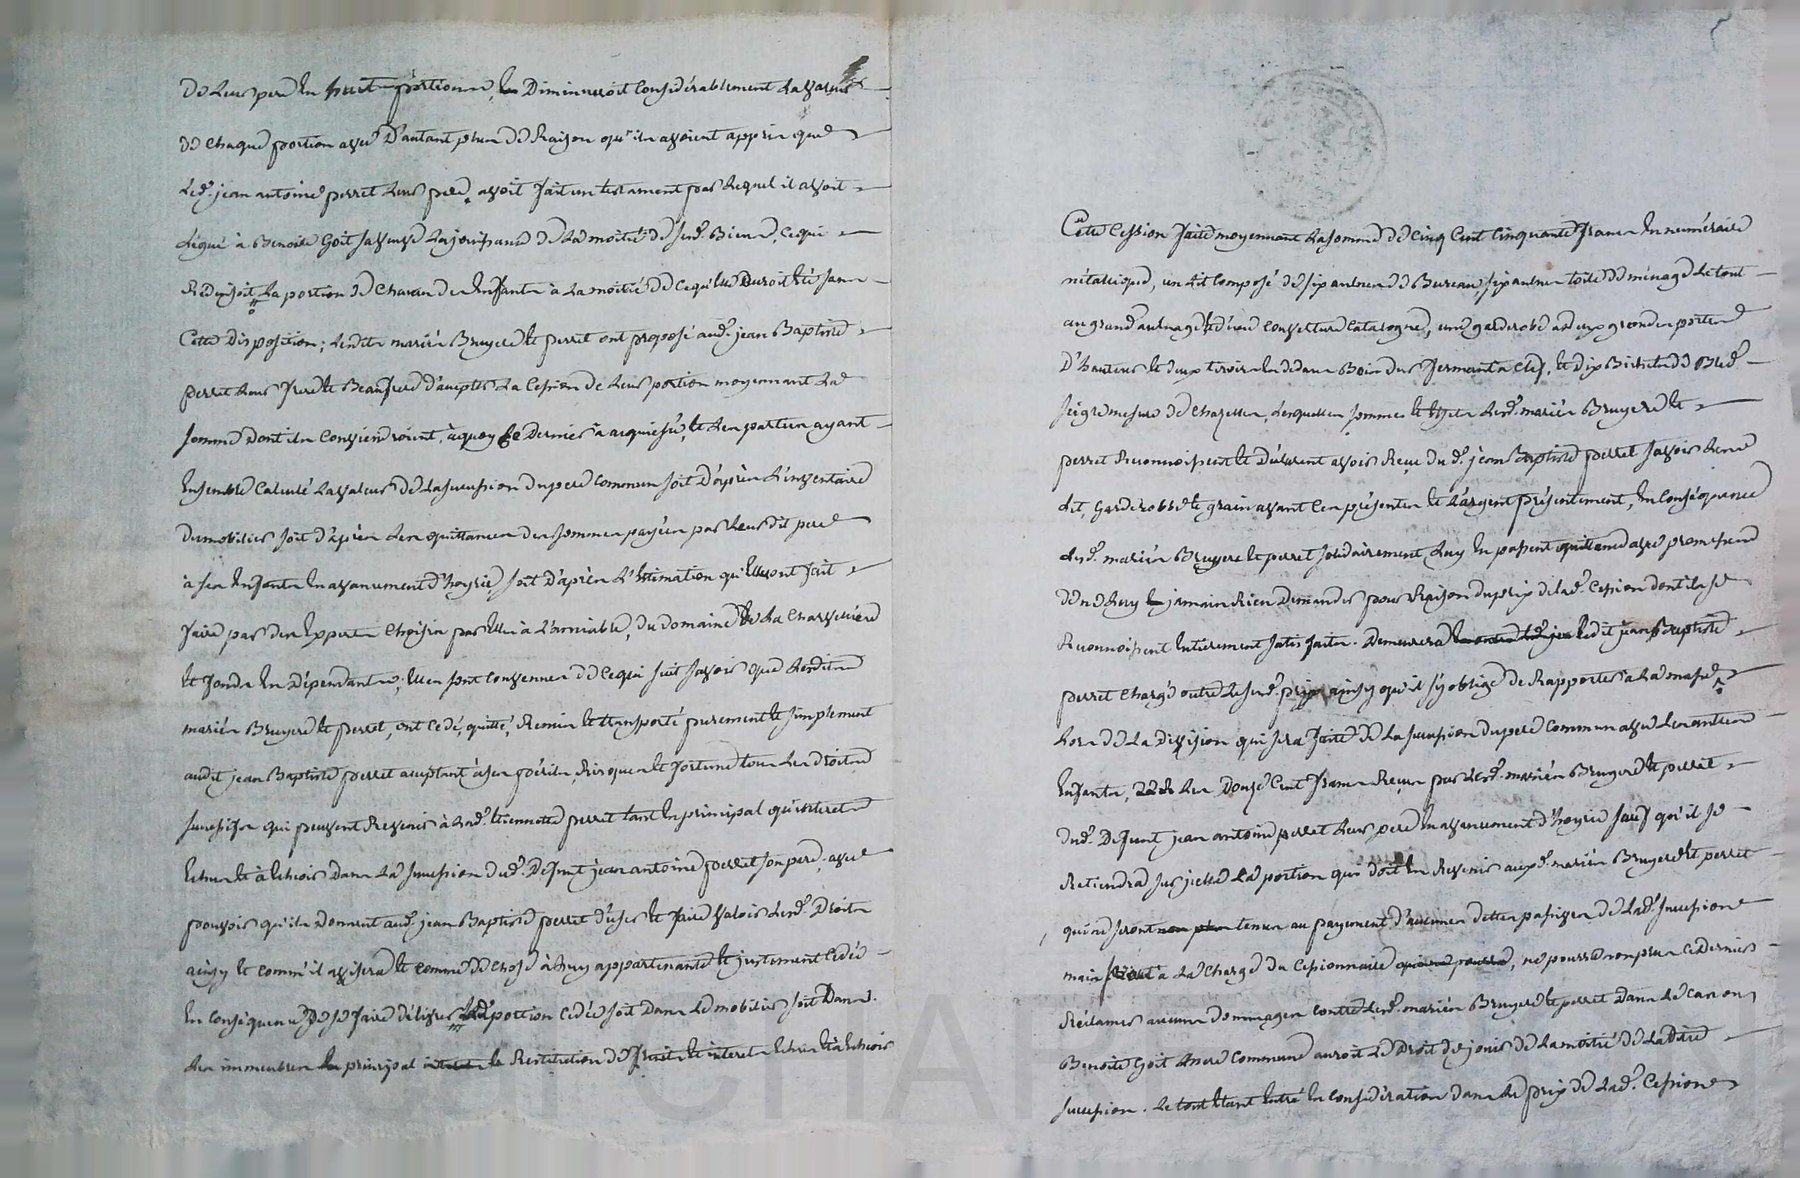 de leur pere en huit portions, Diminueroit Considérablement la valeur
de Chaque portion avec D'autant plus de Raison qu'ils avoient appris que
led. jean antoine perret leur pere, avoit fait un testament par lequel il avoit
légué à Benoite Goit sa veuve la jouissance de la moitié de sesd. Biens, ce qui
Réduisoit la portion de Chacun des Enfants à la moitié de ce qu'elle Devroit être sans
Cette Disposition; lesdits mariés Bruyere et perret ont proposé aud. jean Baptiste
perret leur frere et Beaufrere d'accepter la Cession de leur portion moyennant la
somme dont ils Conviendroient, à quoy Ce Dernier a acquiescé, et les parties ayant
Ensemble Calculé la valeur de la succession du pere Commun soit D'après L'inventaire
du mobilier soit d'après les quittances des sommes payées par leurdit pere
à ses Enfants en avancement d'hoyrie, soit D'après L'Estimation qu'elles ont fait
faire par des Experts Choisis par elles à L'amiable, du domaine de la Charveniere
et fonds en Dépendants, elles sont Convenues de ce qui suit savoir que lesdits
mariés Bruyere et perret, ont Cedé, quitté, Remis et transporté purement et simplement
audit jean Baptiste perret acceptant à ses périls, Risques et fortune tous les droits
successifs qui peuvent Revenir à lad. Etiennette perret tant en principal qu'interets
Echus et à Echoir Dans la succession dud. Defunt jean antoine perret son pere, avec
pouvoir qu'ils Donnent aud. jean Baptiste perret d'user et faire valoir lesd. Droits
ainsy et comm'il avisera et comme de Chose à luy appartenante et justement Cédée
En Conséquence De se faire délivrer portion cédée soit Dans le mobilier soit Dans
les immeubles principal et Restitution de fruits et interets Echus et à Echoir
Cette Cession faite moyennant la somme de Cinq Cent Cinquante francs En numéraire
métallique, un Lit Composé de six aulnes de Bureau, six aulnes toile de ménage le tout
au grand aulnage et d'une Couverture Catalogne, une garderobe à deux grandes portes
D'hauteur et deux tiroirs en dedans Bois dur fermant à Clef, et Dix Bichets de Bled
seigle mesure de Chazelles, lesquelles sommes et Effets lesd. mariés Bruyere et
perret Reconnoissent et Déclarent avoir Reçu dud. jean Baptiste perret savoir le
Lit, Garderobe et grain avant Ces présentes et L'argent présentement, En Conséquence
lesd. mariés Bruyere et perret solidairement Luy En passent quittance avec promesse
de ne Luy jamais Rien Demander pour Raison du prix de lad. Cession dont ils se
Reconnoissent Entierement satisfaits. Demeurera ledit jean Baptiste
perret Chargé outre le susd. prix ainsy qu'il s'y oblige de Rapporter à la masse
Lors de La Division qui sera faite de La succession du pere Commun avec les autres
Enfants, Les Douze Cent francs Reçus par lesd. mariés Bruyere et perret
dud. Defunt jean antoine perret leur pere En avancement d'hoyrie sauf qu'il se
Retiendra sur icelle La portion qui doit En Revenir auxd. mariés Bruyere et perret
qui ne seront tenus au payement d'aucunes dettes passives de lad. succession
mais à La Charge du Cessionnaire, ne pourra non plus ce Dernier
Réclamer aucuns dommages Contre lesd. mariés Bruyere et perret Dans le cas où
Benoite Goit mere Commune auroit Le Droit de jouir de La moitié de Ladite
succession. Le tout Etant Entré En Considération dans Le prix de Lad. Cession